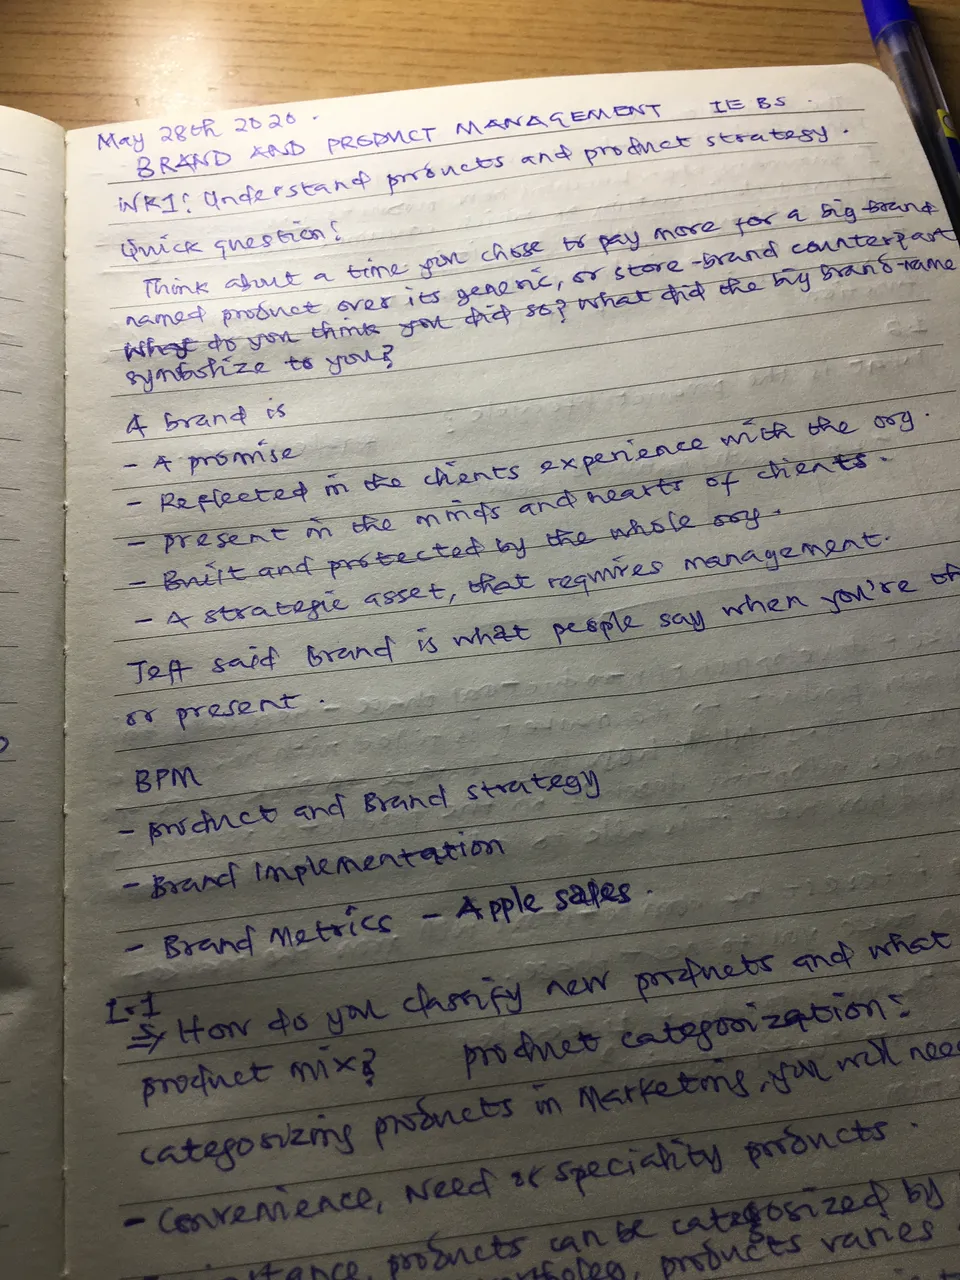 May 28th 2020.
BRAND AND PRODUCT MANAGEMENT IE BS.
WK1: Understand products and product strategy.
Quick question:
Think about a time you chose to pay more for a big brand
named product over its generic, or store-brand counterpart
Why do you think you did so? What did the big brand-name
symbolize to you?
A brand is
- A promise
- Reflected in the clients experience with the org.
- present in the minds and hearts of clients.
- Built and protected by the whole org.
- A strategic asset, that requires management.
Jeff said Brand is what people say when you're
or present.
BPM
- product and Brand strategy
- Brand implementation
- Brand Metrics - Apple sales.
1.1
⇒ How do you classify new products and what
product mix? product categorization:
categorizing products in Marketing, you will need
- Convenience, Need or speciality products.
products can be categorized by
products varies